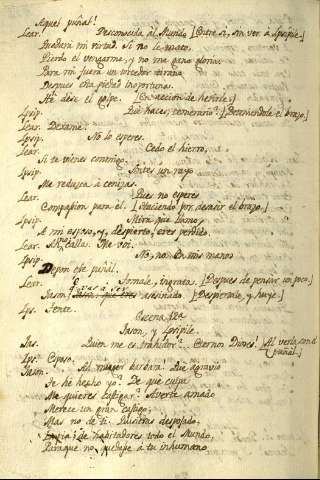 Aquel puñal!
Lear. Desconocida al Mundo [Entre sí, sin ver à Ipsiple.]
Quedará mi virtud. Si no le mato,
Pierdo el vengarme, y no me gano gloria.
Para mi fuera un torcedor tirano
Despues esta piedad inoportuna.
He dese el golpe. (En accion de herirle.)
Ipsip. Qué haces, temerario? [Deteniendole el brazo.]
Lear. Dexame.
Ipsip. No lo esperes.
Lear. Cedo el hierro,
Si te vienes conmigo.
Ipsip. Antes un rayo
Me reduzca à cenizas.
Lear. Pues no esperes
Compasion para el. [Haciendo por desasir el brazo.]
Ipsip. Mira que llamo
A mi esposo, y, despierto, eres perdido.
Lear. Ah! no, calla. Me voi.
Ipsip. No, no. En mis manos
Depon ese puñal.
Lear. Tomale, ingrata. [Despues de pensar un poco.]
Jason! asesinado [Despiertale, y huye.]
Ips. Tente.
Escena 12ª
Jason, y Ipsiple.
Jas. Quien me es trahidor?.. Eternos Dioses! [Al verla con el puñal.]
Ips. Esposo,
Jason. Ah muger barbara! Que agravio
Te hé hecho yo? De que culpa
Me quieres castigar? Averte amado
Merece un gran castigo;
Mas no de ti. Quisieras despojado,
Impia! de habitadores todo el Mundo,
Paraque no quedase à tu inhumano,